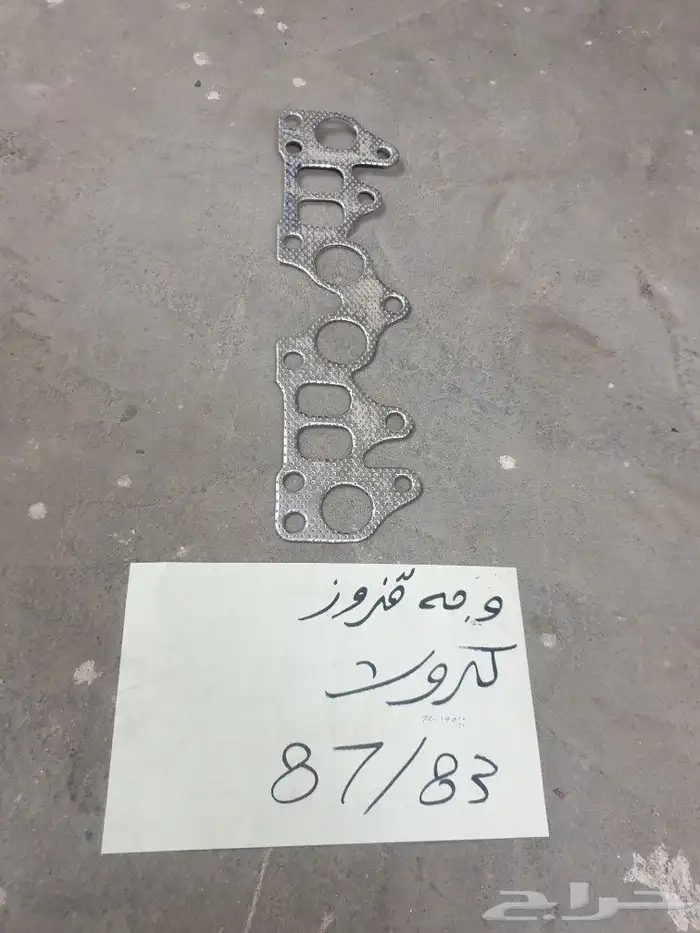 وجه قزوز
كروت
87/83
حراج